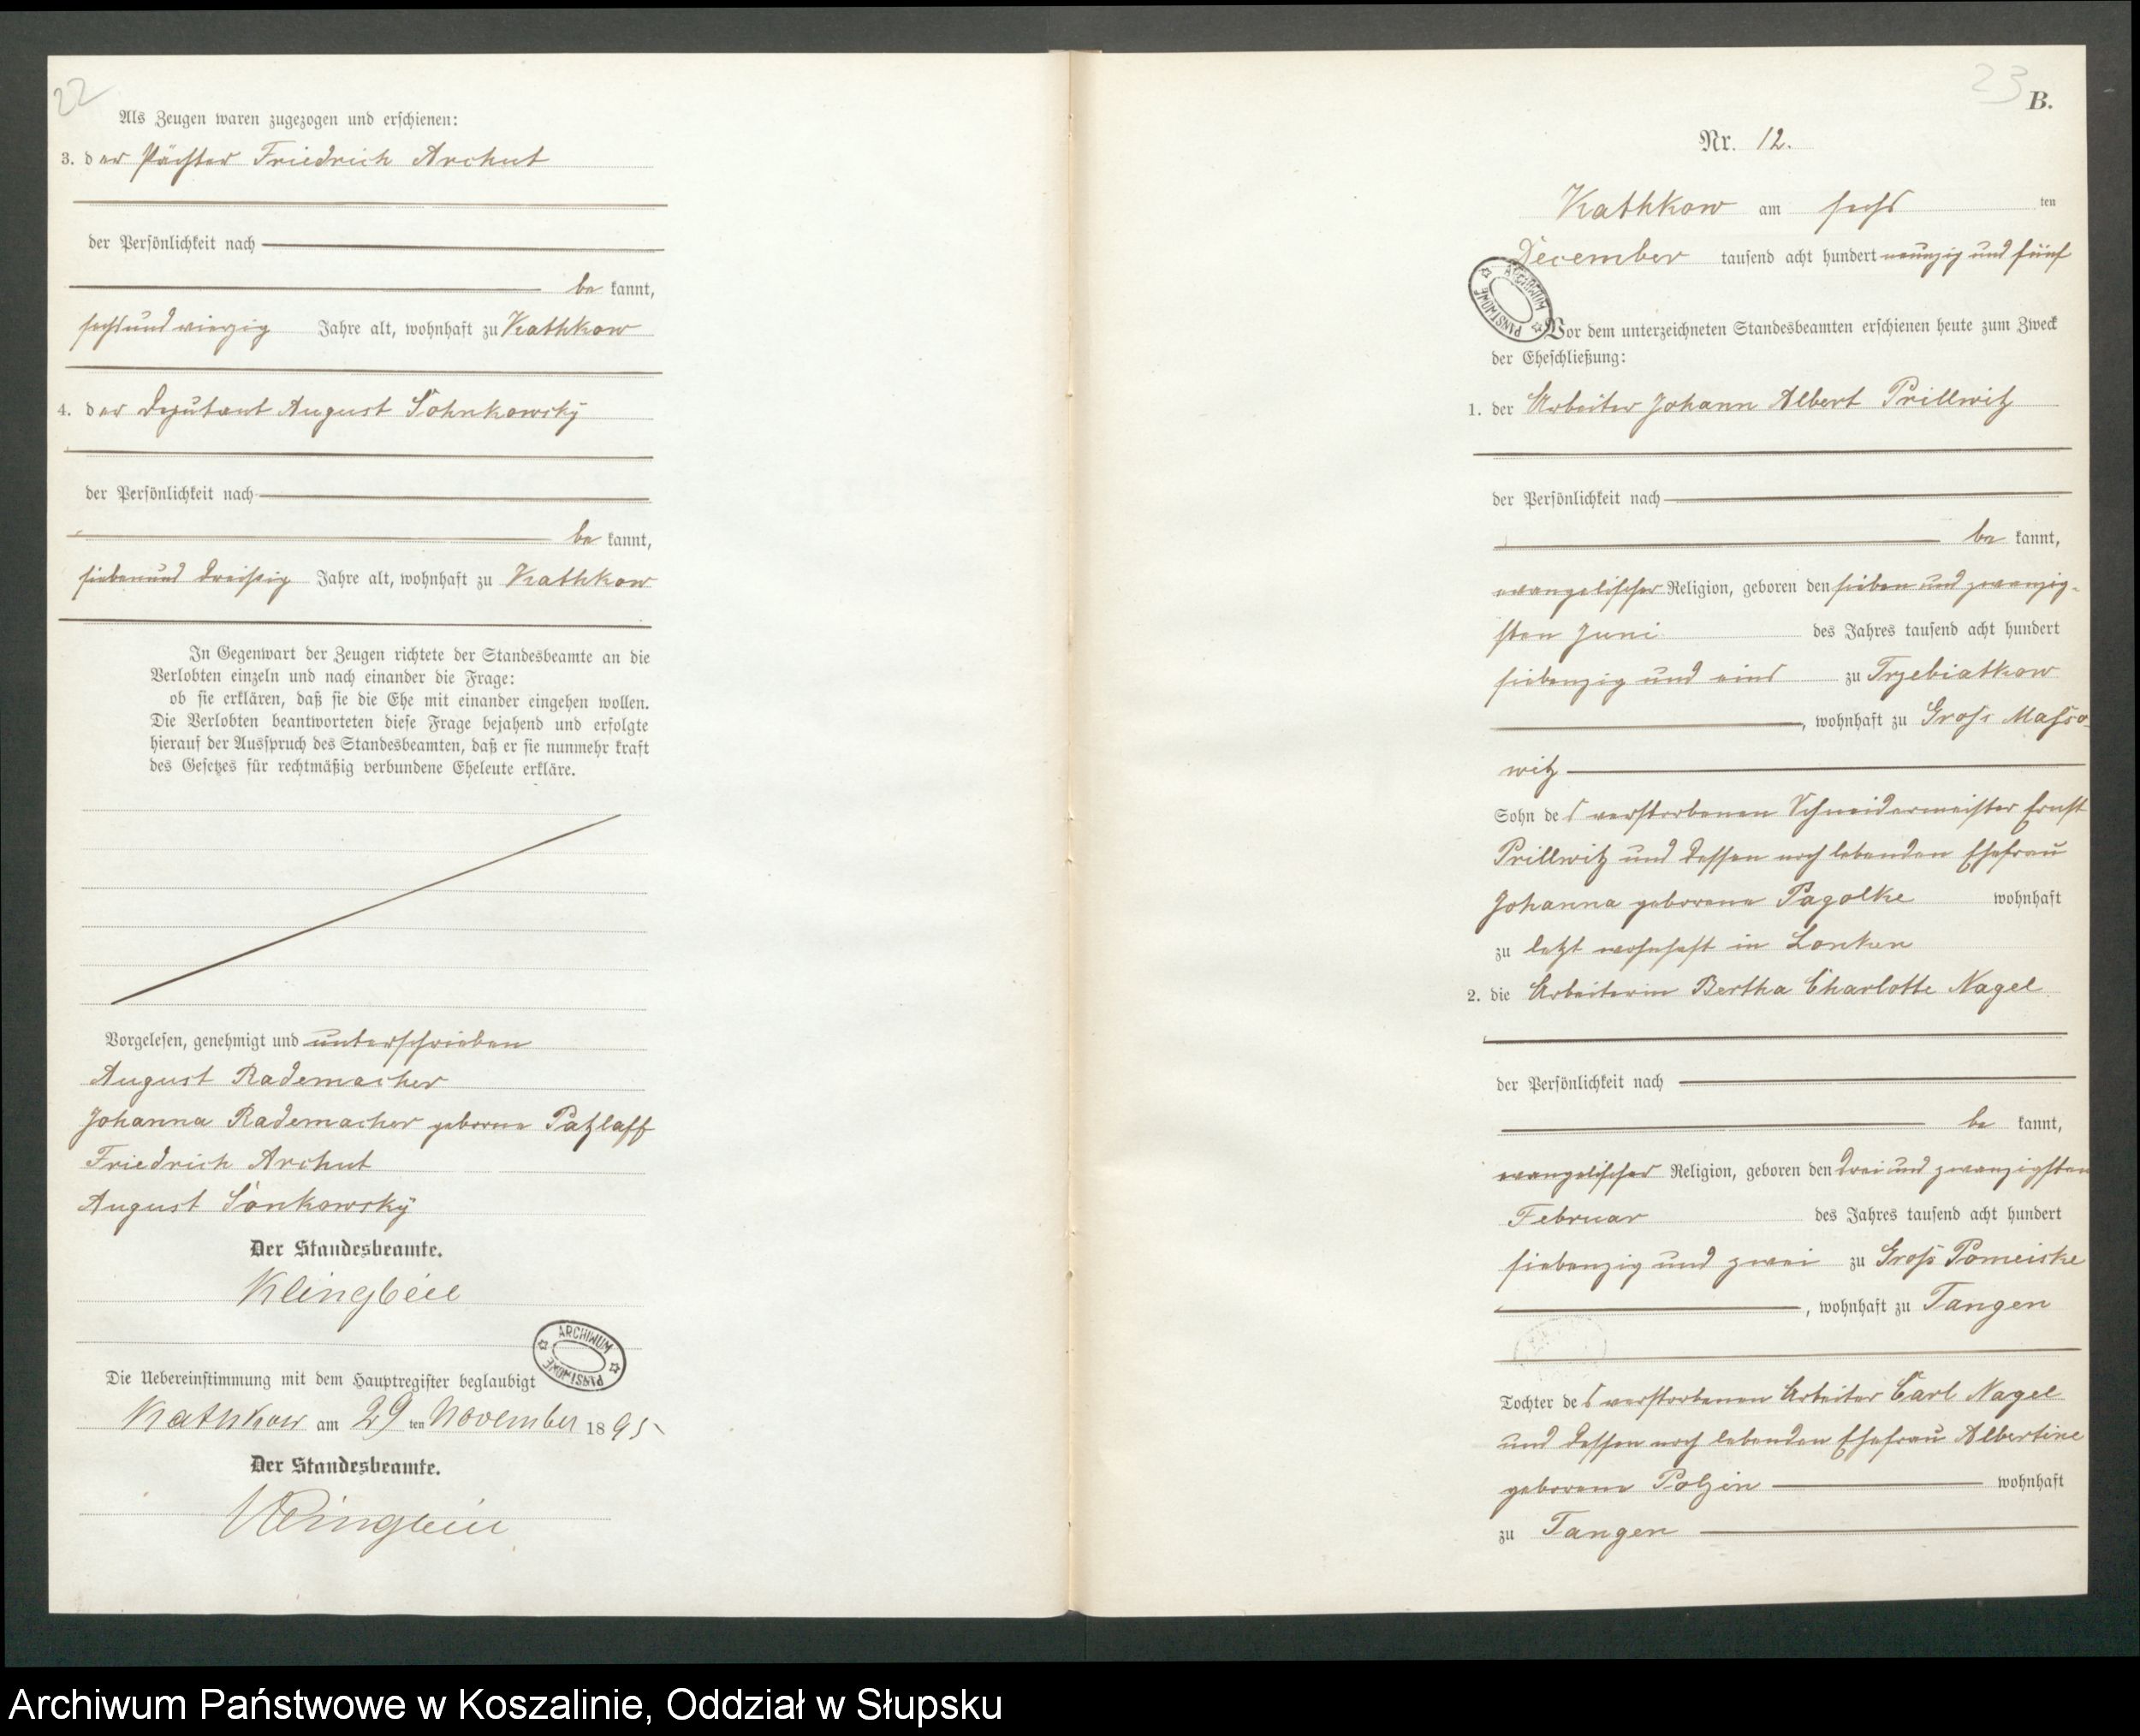 22
Als Zeugen waren zugezogen und erschienen:
3. der Pächter Friedrich Archut
der Persönlichkeit nach
be kannt,
sechsundvierzig Jahre alt, wohnhaft zu Kathkow
4. der Deputant August Sohnkowsky
der Persönlichkeit nach
be kannt,
siebenund dreißig Jahre alt, wohnhaft zu Kathkow
In Gegenwart der Zeugen richtete der Standesbeamte an die
Verlobten einzeln und nach einander die Frage:
ob sie erklären, daß sie die Ehe mit einander eingehen wollen.
Die Verlobten beantworteten diese Frage bejahend und erfolgte
hierauf der Ausspruch des Standesbeamten, daß er sie nunmehr kraft
des Gesetzes für rechtmäßig verbundene Eheleute erkläre.
Vorgelesen, genehmigt und unterschrieben
August Rademacher
Johanna Rademacher geborne Patzlaff
Friedrich Archut
August Sonkowsky
Der Standesbeamte.
Klingbeil
ARCHIWUM PAŃSTWOWE
Die Uebereinstimmung mit dem Hauptregister beglaubigt
Kathkow am 29 ten November 1895
Der Standesbeamte.
Klingbeil
23
B.
Nr. 12.
Kathkow am sechs ten
December tausend acht hundert neunzig und fünf
ARCHIWUM PAŃSTWOWE
Vor dem unterzeichneten Standesbeamten erschienen heute zum Zweck
der Eheschließung:
1. der Arbeiter Johann Albert Prillwitz
der Persönlichkeit nach
be kannt,
evangelischer Religion, geboren den sieben und zwanzig-
sten Juni des Jahres tausend acht hundert
siebenzig und eins zu Trzebiatkow
, wohnhaft zu Groß Masso-
witz
Sohn des verstorbenen Schneidermeister Ernst
Prillwitz und dessen noch lebenden Ehefrau
Johanna geborene Pagolke wohnhaft
zu letzt wohnhaft in Lonken
2. die Arbeiterin Bertha Charlotte Nagel
der Persönlichkeit nach
be kannt,
evangelischer Religion, geboren den drei und zwanzigsten
Februar des Jahres tausend acht hundert
siebenzig und zwei zu Groß Pomeiske
, wohnhaft zu Tangen
Tochter des verstorbenen Arbeiter Carl Nagel
und dessen noch lebenden Ehefrau Albertine
geborene Polzin wohnhaft
zu Tangen
Archiwum Państwowe w Koszalinie, Oddział w Słupsku